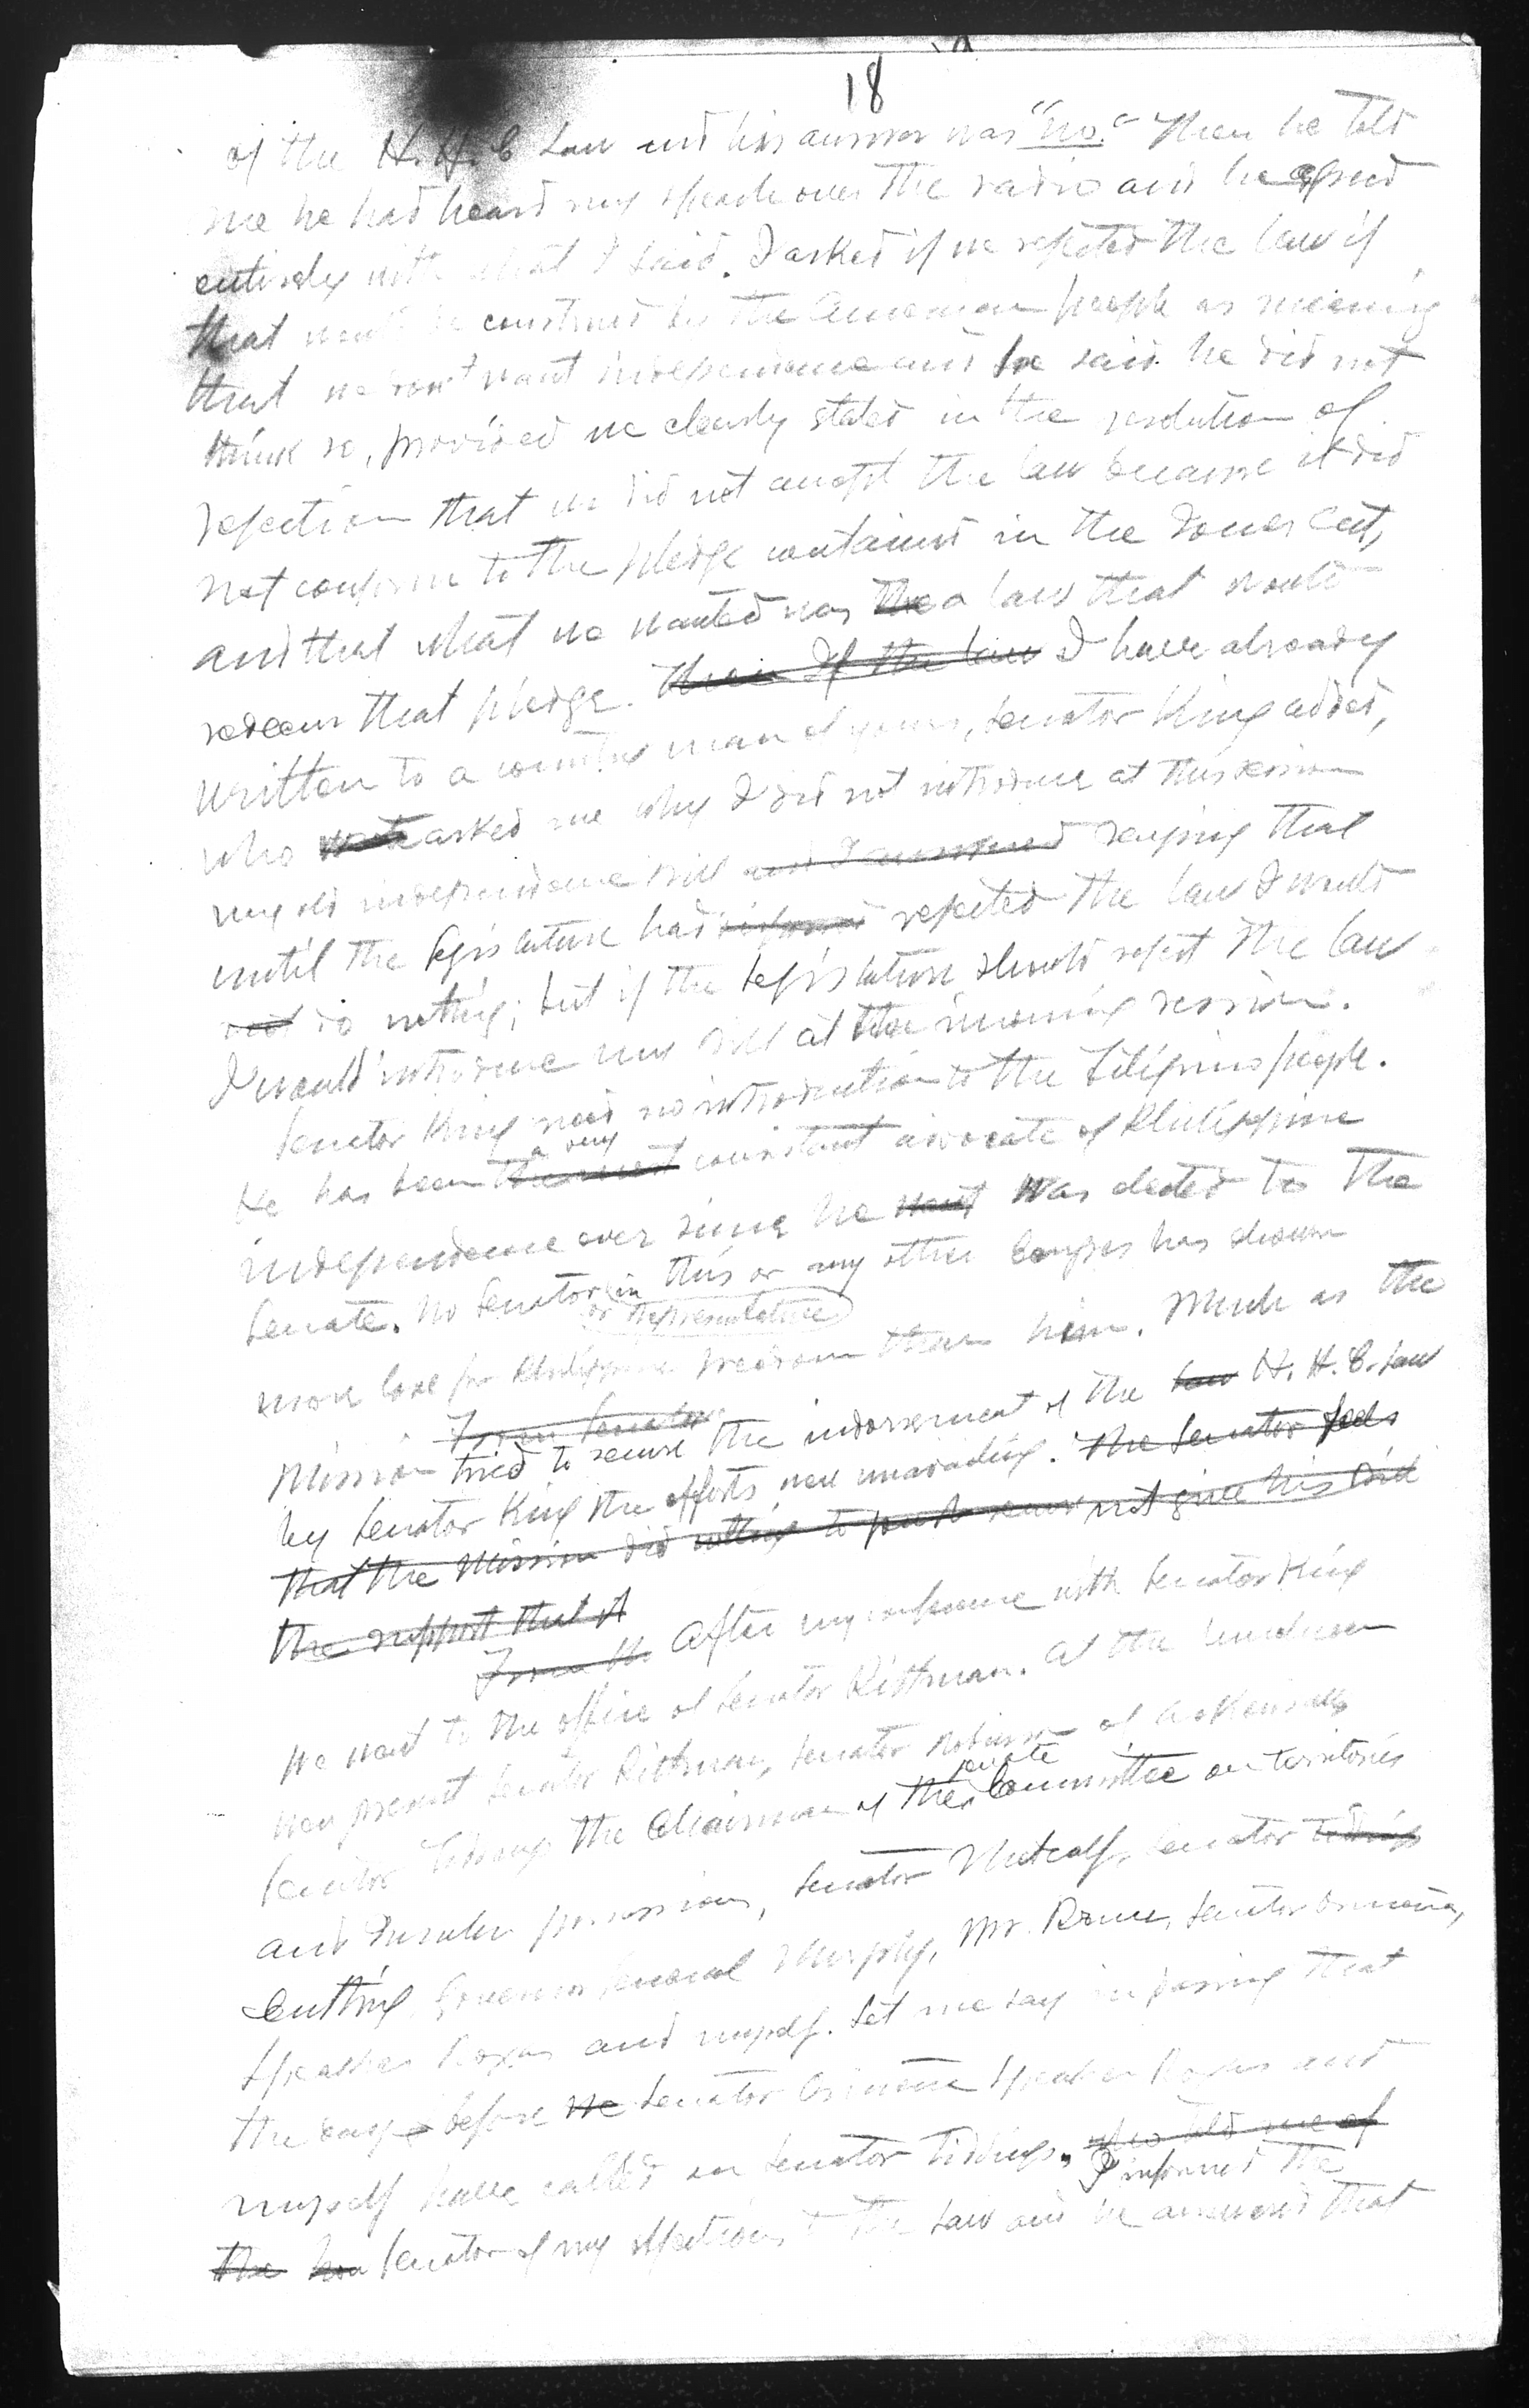 18
of the H. H. C Law and his answer was "no." Then he told
me he had heard my speech over the radio and he agreed
entirely with what I said. I asked if we rejected the law if
that would be construed by the American people as meaning
that we don't want independence and he said he did not
think so, provided we clearly stated in the resolution of
rejection that we did not accept the law because it did
not conform to the pledge contained in the Jones Act,
and that what we wanted was the a law that would
redeem that pledge. Then If the law I have already
written to a country man of yours, Senator King added,
who asked me why I did not introduce at this session
my old independence bill and I answered saying that
until the Legislature had rejected the law I would
not do nothing; but if the Legislature should reject the law
I would introduce my bill at the incoming session.
Senator King need no introduction to the Filipino people.
a very
He has been the most constant advocate of Philippine
independence ever since he went was elected to the
Senate. No Senator in this or any other Congress has shown
or Representative
more love for Philippine freedom than him. Much as the
From Senator
Mission tried to secure the indorsement of the Law H. H. C. Law
by Senator King the efforts were unavailing. The Senator feels
that the Mission did nothing to not give his
the support that it
From the After my conference with Senator King
we went to the office of Senator Pittman. At the luncheon
were present Senator Pittman, Senator Robinson of Arkansas,
Senate
Senator Tidings the Chairman of the Committee on Territories
and Insular possessions, Senator Metcalf, Senator Tidings
Cutting, Governor General Murphy, Mr. Senator Osmeña,
Speaker Roxas and myself. Let me say in passing that
the day before we Senator Osmeña Speaker Roxas and
myself have called on Senator Tidings. who told me of
I informed the
the Senator of my objections to the Law and he answered that